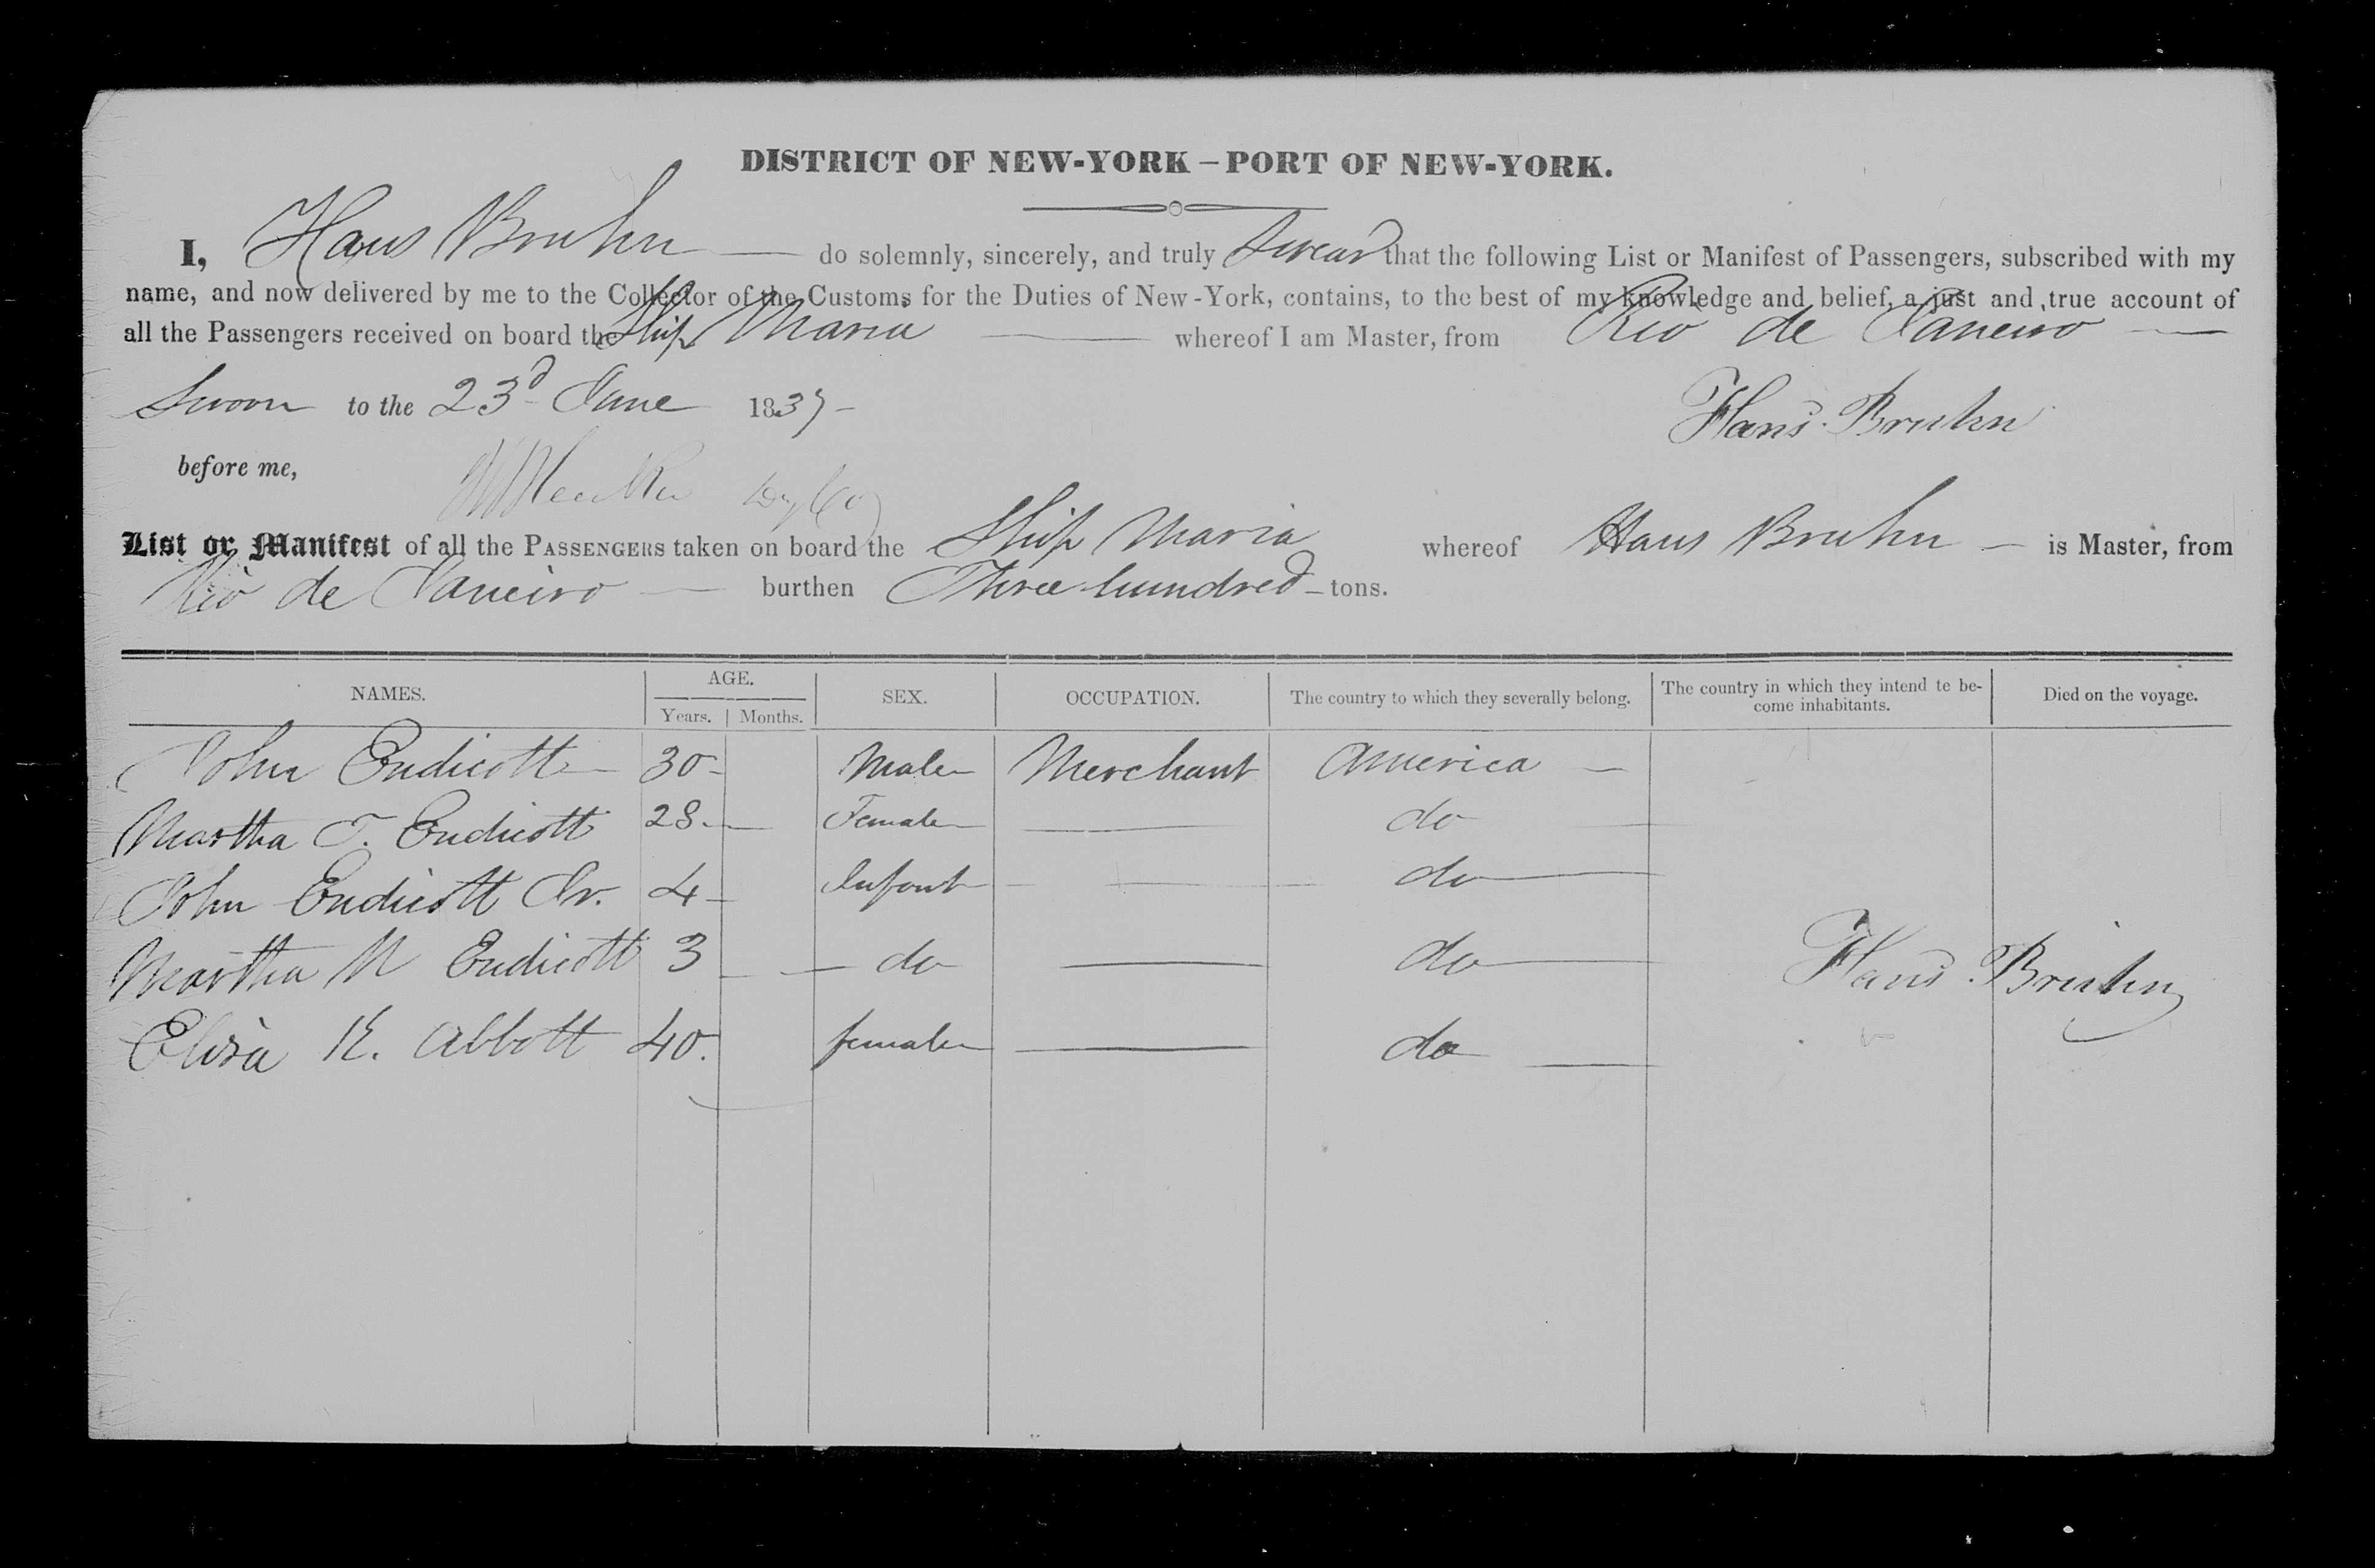 DISTRICT OF NEW-YORK – PORT OF NEW-YORK.
I, Hans Bruhn — do solemnly, sincerely, and truly Swear that the following List or Manifest of Passengers, subscribed with my
name, and now delivered by me to the Collector of the Customs for the Duties of New-York, contains, to the best of my knowledge and belief, a just and true account of
all the Passengers received on board the Ship Maria — whereof I am Master, from Rio de Janeiro —
Sworn to the 23d June 1837 - Hans Bruhn
before me,
List or Manifest of all the PASSENGERS taken on board the Ship Maria whereof Hans Bruhn — is Master, from
Rio de Janeiro — burthen Three hundred – tons.
NAMES. AGE. Years. Months. SEX. OCCUPATION. The country to which they severally belong. The country in which they intend te become inhabitants. Died on the voyage.
John Endicott 30 - Male Merchant America —
Martha T. Endicott 28 - Female — do
John Endicott Jr. 4 - Infant — do —
Martha N Endicott 3 — do — do —
Hans Bruhn
Eliza K. Abbott 40. female — do —